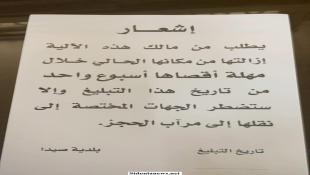 إشعار
يطلب من مالك هذه الالية
إزالتها من مكانها الحالي خلال
مهلة أقصاها أسبوع واحد
من تاريخ هذا التبليغ وإلا
ستضطر الجهات المختصة إلى
نقلها إلى مرآب الحجز.
تاريخ التبليغ بلدية صيدا
Sidonianews.net